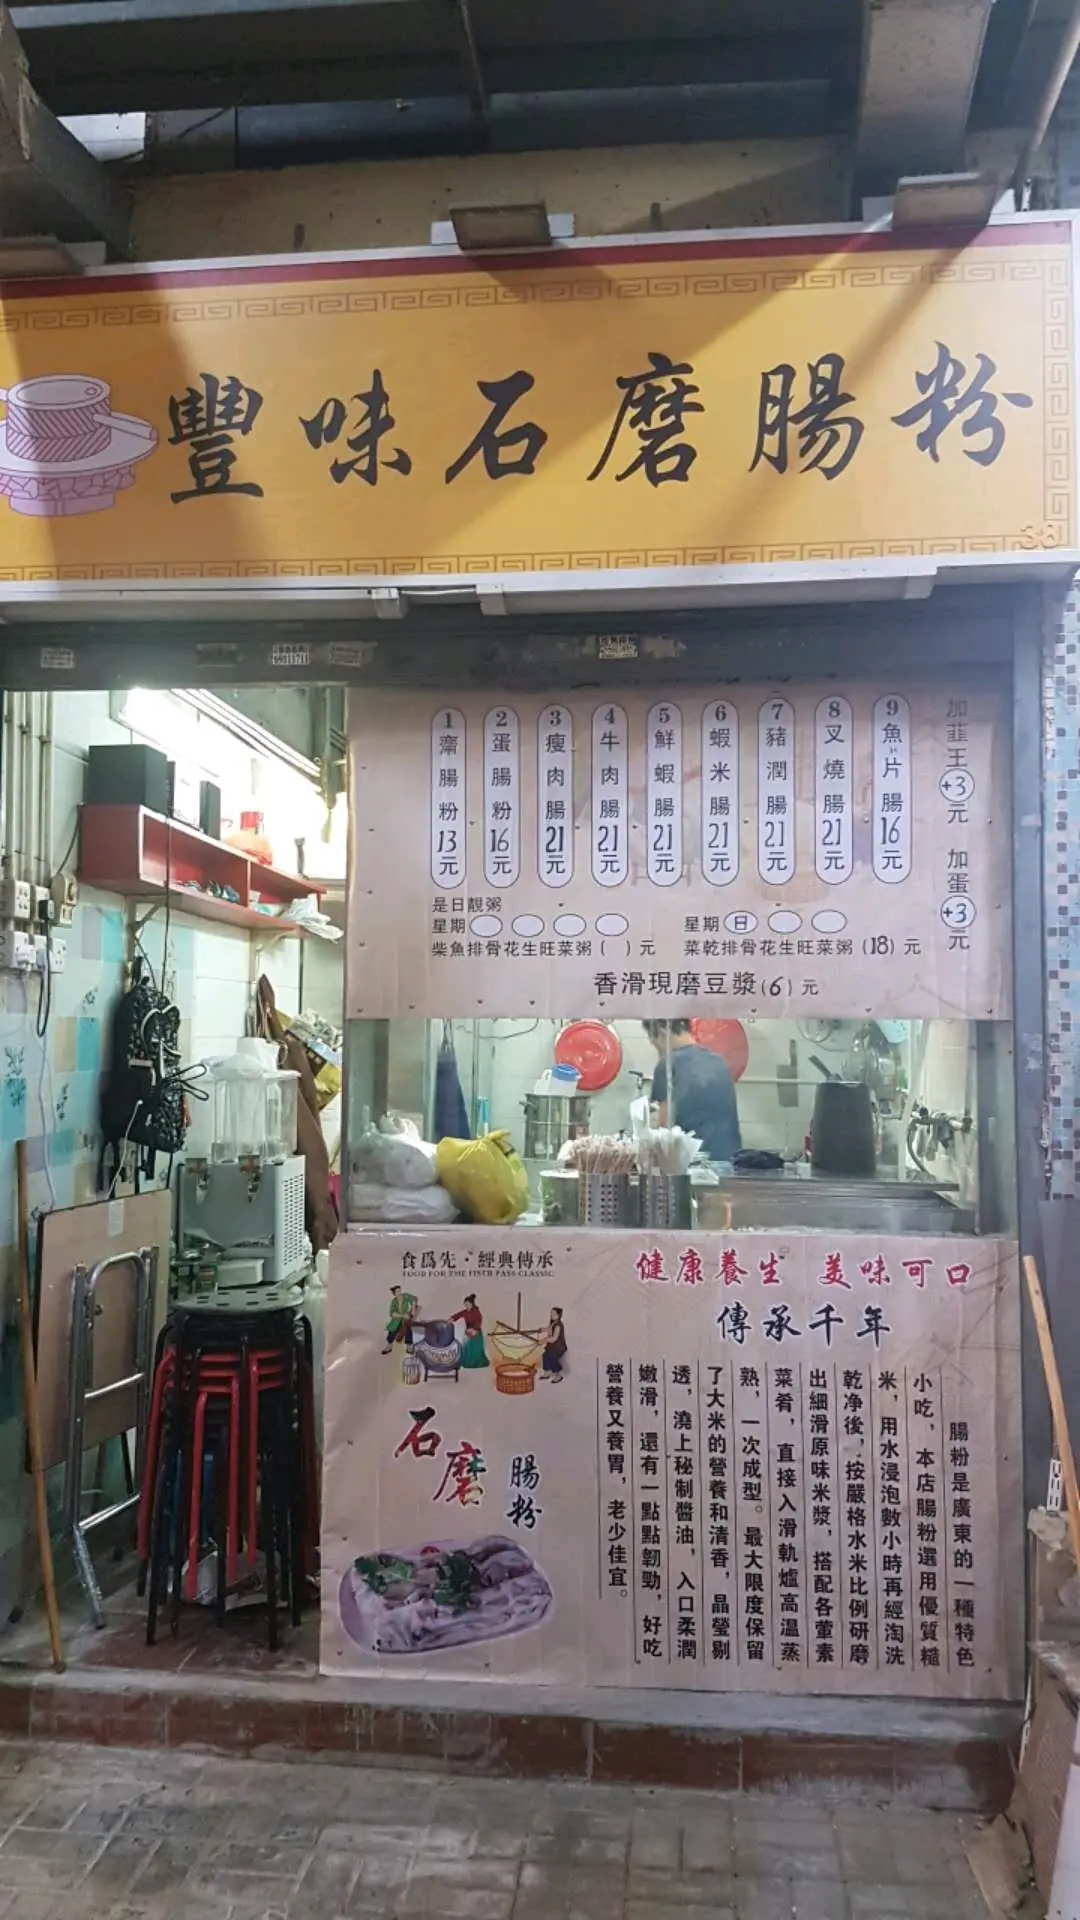 豐味石磨腸粉
38
1 齋腸粉 13元
2 蛋腸粉 16元
3 瘦肉腸 21元
4 牛肉腸 21元
5 鮮蝦腸 21元
6 蝦米腸 21元
7 豬潤腸 21元
8 叉燒腸 21元
9 魚片腸 16元
加韮王+3元 加蛋+3元
是日靚粥
星期
柴魚排骨花生旺菜粥( )元
星期 日
菜乾排骨花生旺菜粥(18)元
香滑現磨豆漿(6)元
食爲先·經典傳承
FOOD FOR THE FISTR PASS CLASSIC
石磨
腸粉
健康養生 美味可口
傳承千年
腸粉是廣東的一種特色
小吃，本店腸粉選用優質糙
米，用水浸泡數小時再經淘洗
乾净後，按嚴格水米比例研磨
出細滑原味米漿，搭配各葷素
菜肴，直接入滑軌爐高溫蒸
熟，一次成型。最大限度保留
了大米的營養和清香，晶瑩剔
透，澆上秘制醬油，入口柔潤
嫩滑，還有一點點韌勁，好吃
營養又養胃，老少佳宜。